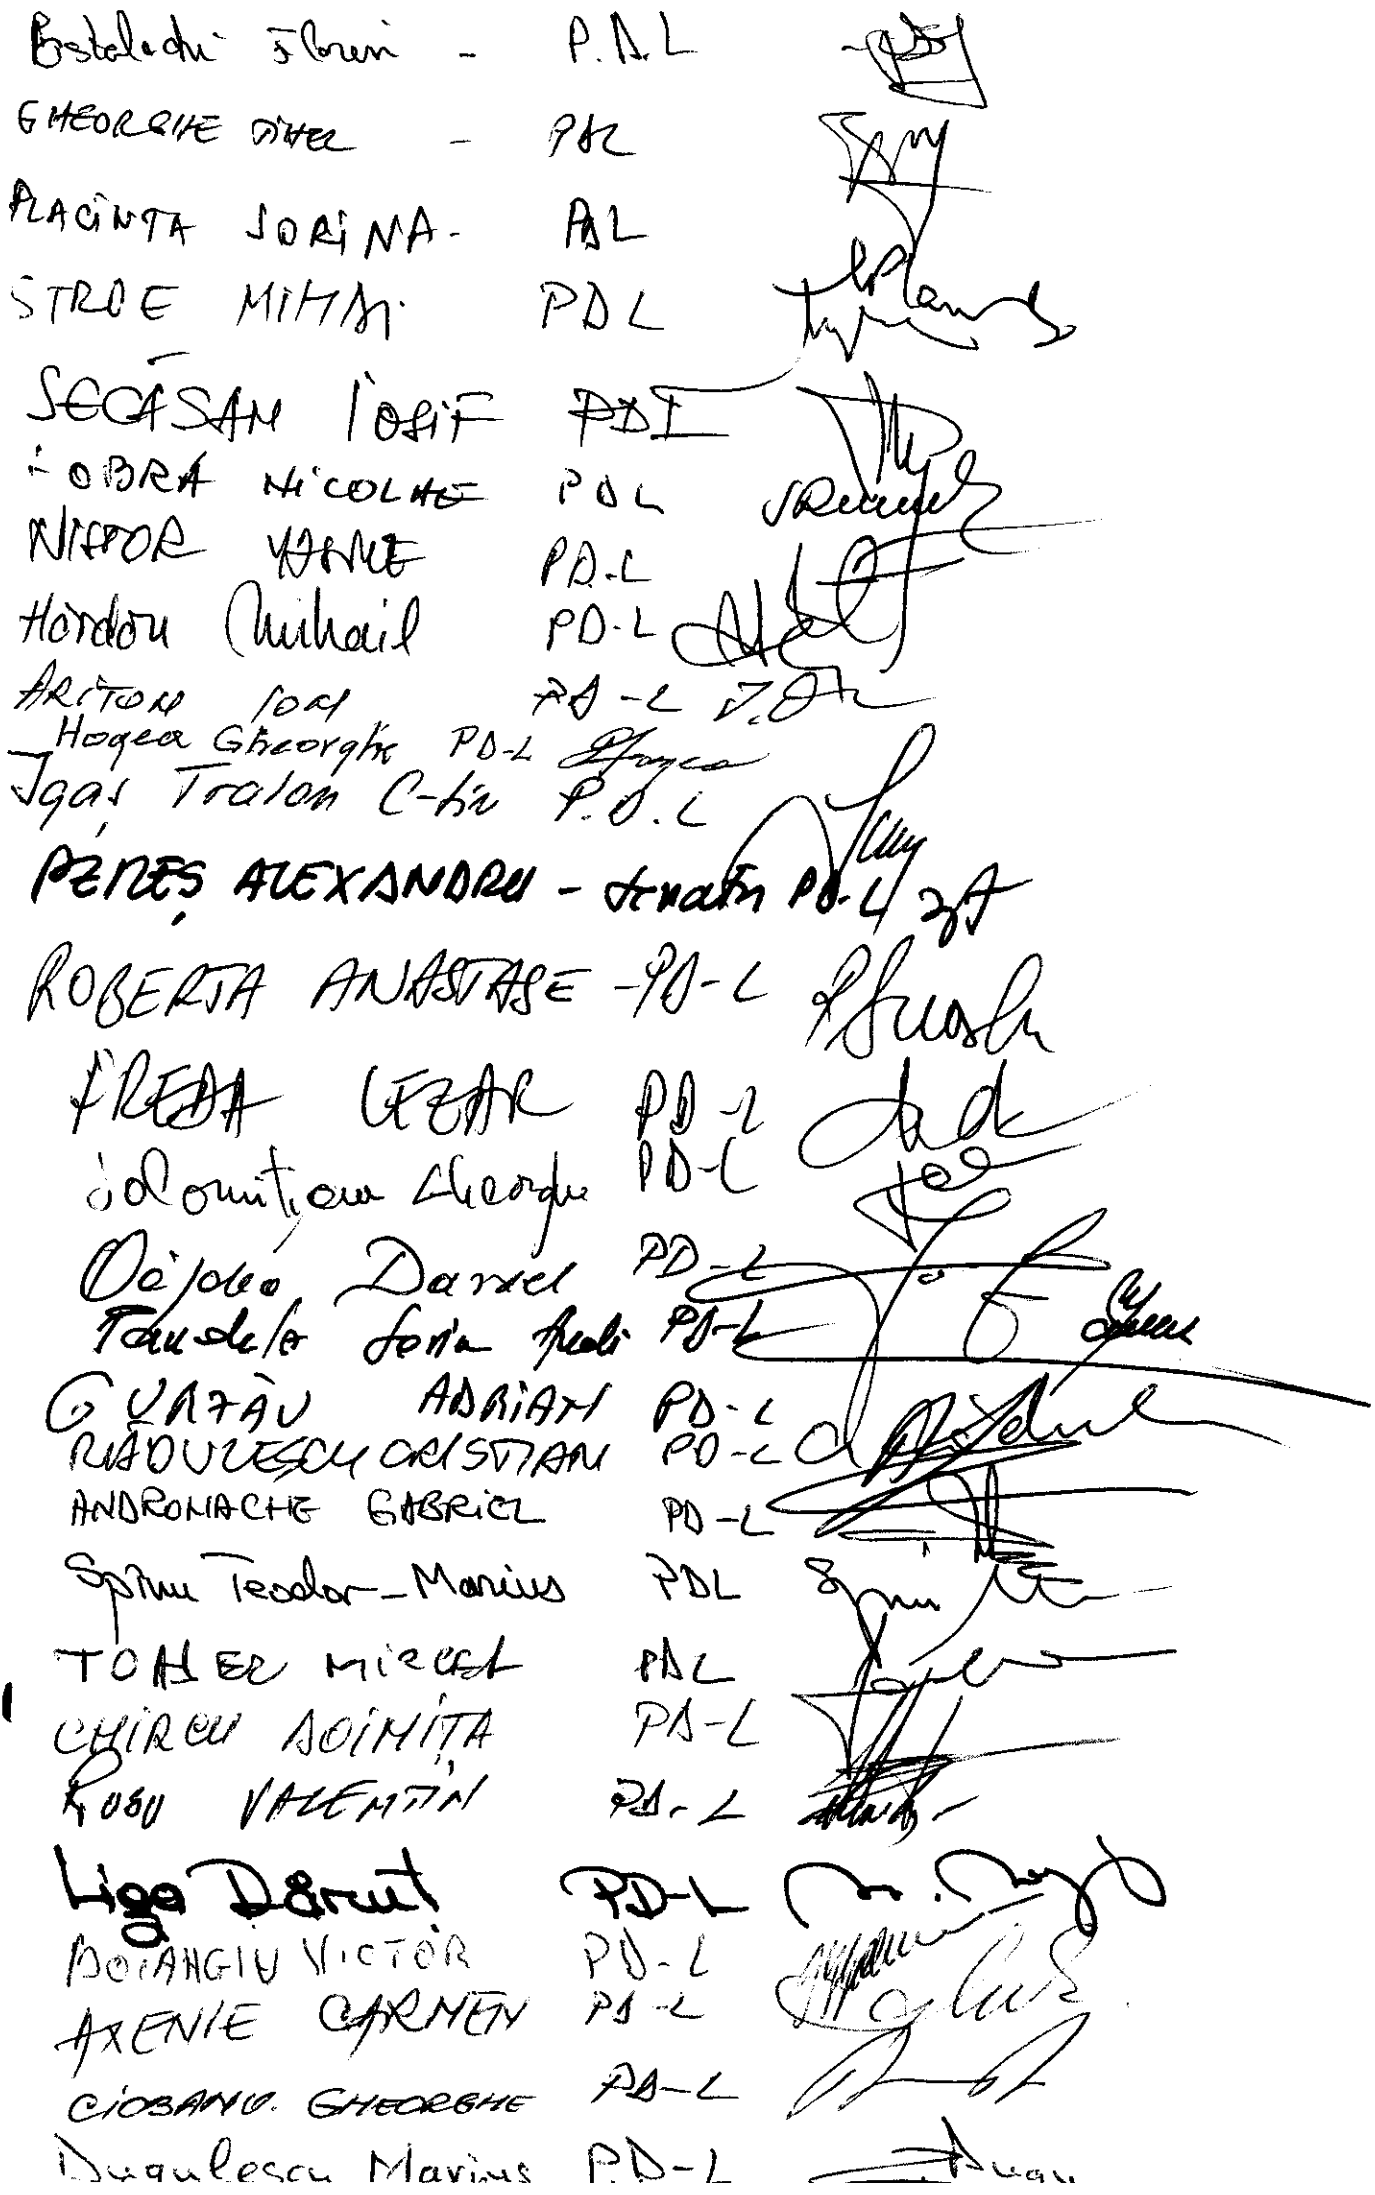 Postolachi Florin - P.D.L
GHEORGHE TINEL - PDL
PLACINTA SORINA - PDL
STROE MIHAI PDL
SECĂȘAN IOSIF PDL
DOBRA NICOLAE PDL
NISTOR VASILE PD-L
Hărdău Mihail PD-L
ARITON ION PD-L
Hogea Gheorghe PD-L
Igaș Traian C-tin P.D.L
PEREȘ ALEXANDRU - senator PD-L
ROBERTA ANASTASE - PD-L
PREDA CEZAR PD-L
Ialomițianu Gheorghe PD-L
Oajdea Daniel PD-L
Sorin PD-L
GURZĂU ADRIAN PD-L
RĂDULESCU CRISTIAN PD-L
ANDRONACHE GABRIEL PD-L
Spînu Teodor-Marius PDL
TOADER MIRCEA PDL
CHIRCU DOINIȚA PD-L
Roșu VALENTIN PD-L
Liga Dănuț PD-L
BOIANGIU VICTOR PD-L
AXENIE CARMEN PD-L
CIOBANU GHEORGHE PD-L
Dugulescu Marius P.D-L